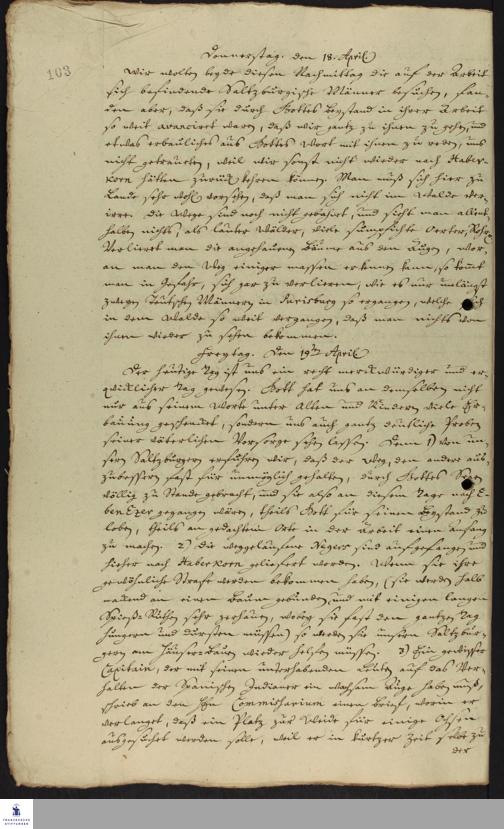 103
Donnerstag. den 18. April
Wir wolten beyde diesen Nachmittag die auf der Arbeit
sich befindende Saltzburgische Männer besuchen, fan-
den aber, daß sie durch Gottes Beystand in ihrer Arbeit
so weit avanciret waren, daß wir gantz zu ihnen zu gehen, und
etwas erbauliches aus Gottes Wort mit ihnen zu reden, uns
nicht getraueten, weil wir sonst nicht wieder nach Haber-
korn hätten zurück kehren können. Man muß sich hier zu
Lande sehr wohl vorsehen, daß man sich nicht im Walde ver-
irre. Die Wege sind noch nicht gebahnt, und sieht man allent-
halben nichts, als lauter Wälder, viele sumpfichte Oerter, Rohr
Verlieret man die angehauene Bäume aus den Augen, wor-
an man den Weg einiger massen erkennen kan, so komt
man in Gefahr, sich gar zu verlieren, wie es nur unlängst
zweyen Teutschen Männern in Purisburg so ergangen, welche sich
in dem Walde so weit vergangen, daß man nichts von
ihnen wieder zu sehen bekommen.
Freytag. Den 19ten April
Der heutige Tag ist uns ein recht merckwürdiger und er-
quicklicher Tag gewesen. Gott hat uns an demselben nicht
nur aus seinem Worte unter Alten und Kindern viele Er-
bauung geschencket, sondern uns auch gantz deutliche Proben
seiner väterlichen Vorsorge sehen lassen. Denn 1) von un-
sern Saltzburgern erfuhren wir, daß der Weg, den andere aus-
zubessern fast für unmöglich gehalten, durch Gottes Segen
völlig zu Stande gebracht, und sie also an diesem Tage nach E-
benEzer gegangen wären, theils Gott für seinen Beystand zu
loben, theils an gedachtem Orte in der Arbeit einen Anfang
zu machen. 2) die weggelauffene Negers sind aufgefangen, und
hieher nach Haberkorn geliefert worden. Wenn sie ihre
gewöhnliche Strafe werden bekommen haben, (sie werden halb
nackend an einen Baum gebunden, und mit einigen langen
Spieß-Ruthen sehr zerhauen, wobey sie fast den gantzen Tag
hungern und dursten müssen) so werden sie unsern Saltzbur-
gern am Häuser-Bauen wieder helfen müssen. 3) Ein gewisser
Capitain, der mit seinen unterhabenden Leuten auf das Ver-
halten der Spanischen Indianer ein wachsam Auge haben muß,
schrieb an den Hn Commissarium einen Brief, worin er
verlanget, daß ein Platz zur Weide für einige Ochsen
ausgesuchet werden solle, weil er in kurtzer Zeit selbe zu
der
FRANCKESCHE
STIFTUNGEN